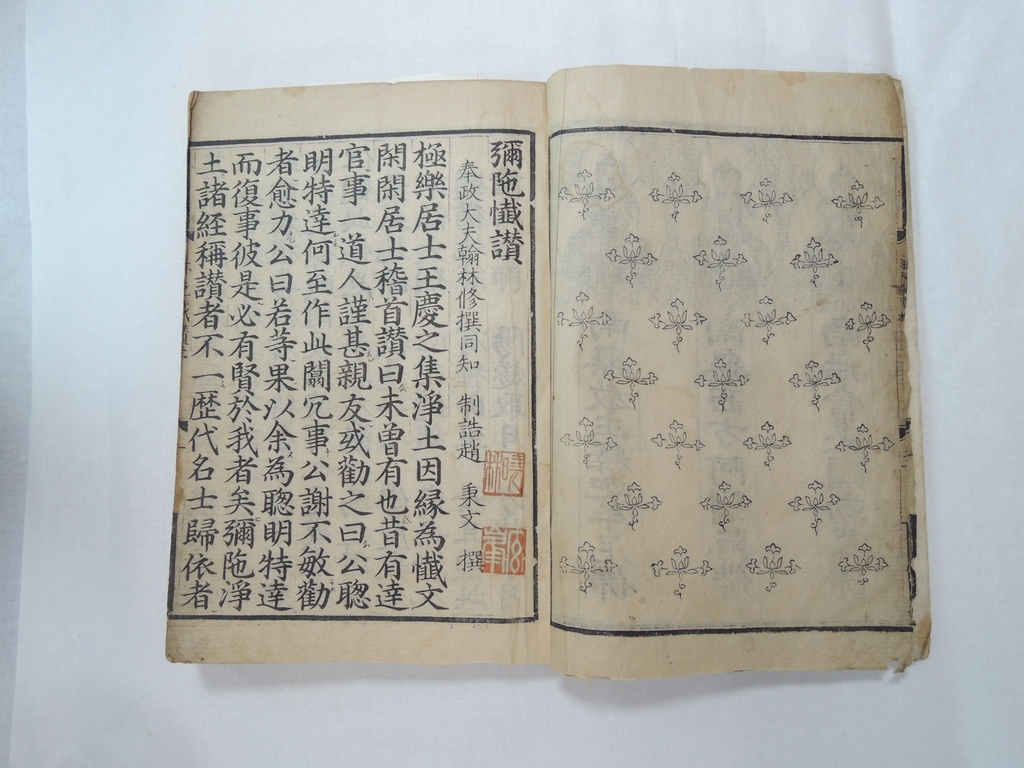 彌陁懺讃
奉政大夫翰林修撰同知 制誥趙 秉文 撰
極樂居士王慶之集淨土因縁為懺文
閑閑居士稽首讃曰未曽有也昔有達
官事一道人謹甚親友或勸之曰公聰
明特達何至作此闒冗事公謝不敏勸
者愈力公曰若等果以余為聰明特達
而復事彼是必有賢於我者矣彌陁淨
土諸經稱讃者不一歷代名士歸依者